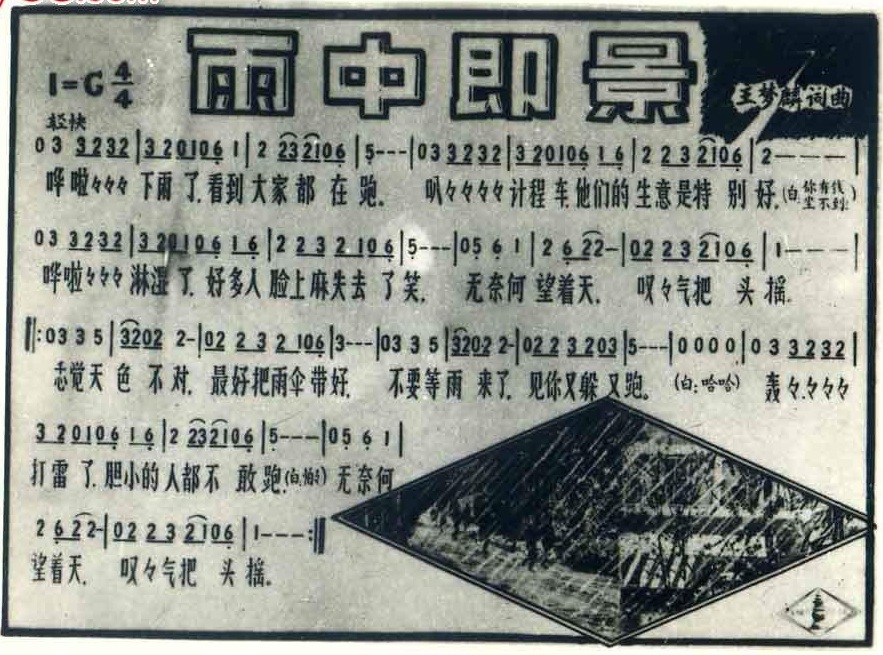 雨中即景
1=G 4/4
王梦麟词曲
轻快
03 3232|320106 1|2 232106|5---|03 3232|320106 16|2 2 3 2106|2---|
哗啦々々々 下雨了.看到大家都在跑. 叭々々々々计程车.他们的生意是特别好.(白:你有钱坐不到)
03 3232|320106 16|2 2 3 2.106|5---|05 6 1|2 622-|02 2 3 2106|1---|
哗啦々々々淋湿了.好多人脸上麻失去了笑. 无奈何望着天. 叹々气把头摇.
‖:03 3 5|3202 2-|02 2 3 2 106|3---|03 3 5|3202 2-|02 2 3 203|5---|0000|03 3232|
天色不对.最好把雨伞带好. 不要等雨来了.见你又躲又跑。(白:哈哈) 轰々々々々
320106 16|2 232106|5---|05 6 1|
打雷了.胆小的人都不敢跑.(白:怕) 无奈何
2 622-|02 2 3 2106|1---:‖
望着天. 叹々气把头摇。